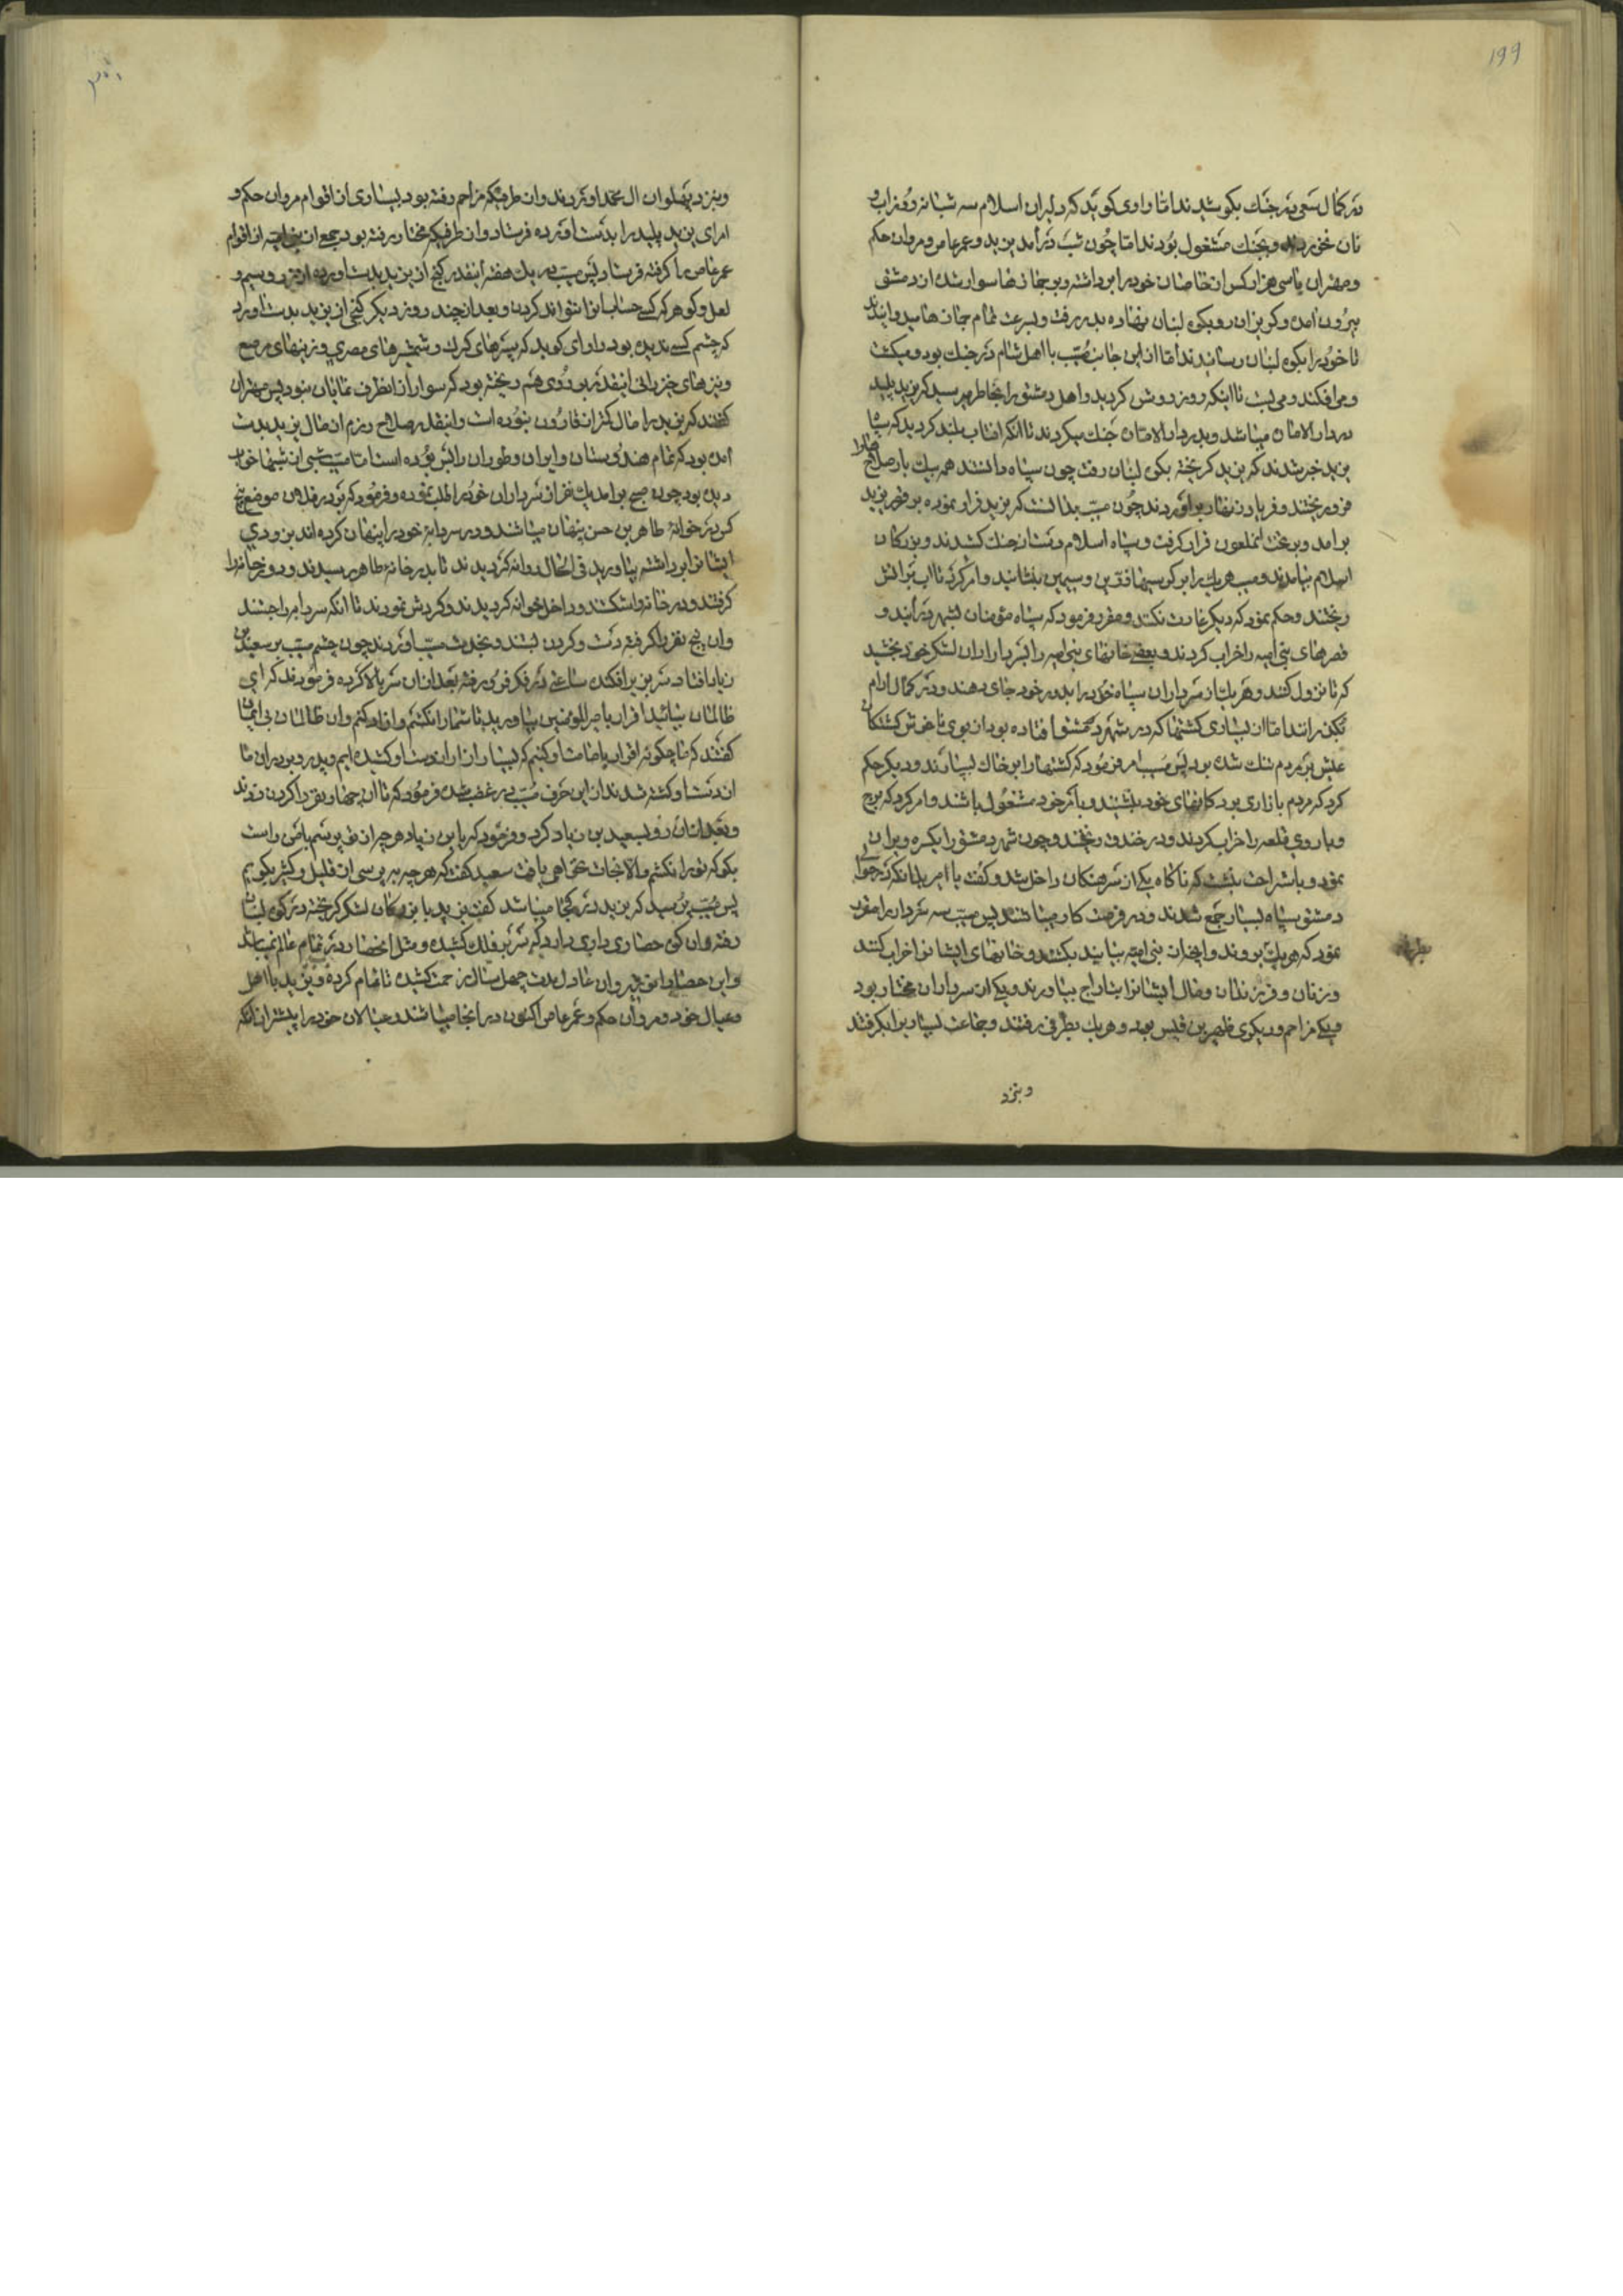 ۱۹۹
در کمال سعی در جنک بکوشیدند اما راوی کوید که دلیران اسلام سه شبانه روز اب و
نان خوردند و بجنک مشغول بودند اما چون شب درآمد یزید و عمر عاص و مروان حکم
و مهتران با سی هزار کس از خاصان خود را برداشته و بر جمازها سوار شده از دمشق
بیرون آمده و کریزان رو بکوه لبنان نهاده بدر رفت و بسرعت تمام جمازها میدوانیدند
تا خود را بکوه لبنان رسانیدند اما از این جانب مسیب با اهل شام در جنک بود و میکشت
و می افکند و می بست تا اینکه روز روشن کردید و اهل دمشق را بخاطر میرسید که یزید پلید
در دار الامان میباشد و بدر دار الامان جنک میکردند تا انکه افتاب بلند کردید که سپاه
یزید خبر شدند که یزید کریخته بکوه لبنان رفت چون سپاه دانستند همه بیک بار صلاح
فرو ریختند و فریاد زنهار برآوردند چون مسیب بدانست که یزید فرار نموده بر قصر یزید
برامد و بر تخت انملعون قرار کرفت و سپاه اسلام دست از جنک کشیدند و بزرکان
اسلام بیامدند و مسیب هر یک را بر کرسیهای زرین و سیمین بنشانید و امر کرد تا اب بر اتش
ریختند و حکم نمود که دیکر غارت نکنند و مقرر فرمود که سپاه مؤمنان بشهر درآیند و
قصرهای بنی امیه را خراب کردند و بعضی خانهای بنی امیه را بسرداران لشکر خود بخشید
که تا نزول کنند و هر یک از سرداران سپاه خود را بدور خود جای دهند و در کمال ارام
بکذرانند اما از بسیاری کشتها که در شهر دمشق افتاده بود از بوی ناخوش کشتکان
عیش بر مردم تنک شده بود پس مسیب امر فرمود که کشتها را بر خاک بسپارند و دیکر حکم
کرد که مردم بازاری بود کانهای خود بنشینند و بامر خود مشغول باشند و امر کرد که برج
و باروی قلعه را خراب کردند و در خندق ریختند و چون شهر دمشق را یکسره ویران
نمود و باستراحت بنشست که ناکاه یکی از سرهنکان داخل شد و کفت یا امیر بدانکه در حوالی
دمشق سپاه بسیار جمع شدند و در فرصت کار میباشند پس مسیب سه سردار را مقرر
نمود که هر یک بروند و ایچه از بنی امیه بیابند بکشند و خانهای ایشانرا خراب کنند
و زنان و فرزندان و مال ایشانرا بتاراج بیاورند و یکی از سرداران مختار بود
و یکی مزاحم و دیکری ظهیر بن قیس بود و هر یک بطرفی رفتند و جماعت بسیار را بکرفتند
و بنزد
و بنزد پهلوان ال محمد اوردند و از طرفیکه مزاحم رفته بود بسیاری از اقوام مروان حکم و
امرای یزید پلید را بدست آورده فرستاد و از طرفیکه مختار رفته بود جمع از بنی امیه از اقوام
عمر عاص را کرفته فرستاد پس مسیب در یک هفته آنقدر کنج از یزید بدست اورده از زر و سیم و
لعل و کوهر که کسی حساب انرا نتواند کردن و بعد از چند روز دیکر کنجی از یزید بدست اورد
که چشم کسی ندیده بود راوی کوید که سپرهای کرک و شمشیرهای مصری و زینهای مرصع
و نیزهای خیزرانی آنقدر بر روی هم ریخته بود که سوار از انطرف نمایان نبود پس مهتران
کفتند که یزید را مال کمتر از قارون نبوده است و اینقدر صلاح رزم از مال یزید بدست
آمده بود که تمام هندوستان و ایران و طوران را بس بوده است اما مسیب شبی از شبها خواب
دیده بود چون صبح برامد یک نفر از سرداران خود را طلب نموده و فرمود که برو در فلان موضع پنج
کس در خوانهٔ طاهر بن حسن پنهان میباشند و در سردابهٔ خود را پنهان کرده اند بزودی
ایشانرا برداشته بیاورید فی الحال روانه کردیدند تا بدر خانهٔ طاهر رسیدند و دور خانه را
کرفتند و در خانه را شکستند و داخل خوانه کردیدند و کردش نمودند تا انکه سردابه را جستند
و ان پنج نفر را کرفته دست و کردن بستند و بخدمت مسیب آوردند چون چشم مسیب بر سعید بن
زیاد افتاد سر بزیر افکنده ساعتی در فکر فرو رفته بعد از ان سر بالا کرده فرمودند که ای
ظالمان بیائید اقرار بامیر المومنین بیاورید تا شمارا نکشم و ازاد کنم و ان ظالمان بی ایمان
کفتند که ما چکونه اقرار بامامت او کنیم که بسیار از ارادت او کشیده ایم و پدر و برادران ما
از دست او کشته شدند از این حرف مسیب در غضب شده فرمود که تا ان چهار نفر را کردن زدند
و بعد از ان رو بسعید بن زیاد کرد و فرمود که یا بن زیاد هر چه از تو پرسم بامن راست
بکو که تو را نکشم والا نجات نخواهی یافت سعید کفت که هر چه بپرسی از قلیل و کثیر بکویم
پس مسیب پرسید که یزید در کجا میباشد کفت یزید با بزرکان لشکر کریخته در کوه لبنان
رفته و ان کوه حصاری داری دارد که سر بر فلک کشیده و مثل انحصار در تمام عالم نمیباشد
و این حصار را نوشیروان عادل مدت چهل سال زحمت کشیده تا تمام کرده و یزید با اهل
و عیال خود و مروان حکم و عمر عاص اکنون در آنجا میباشند و عیالان خود را پیشتر از انکه